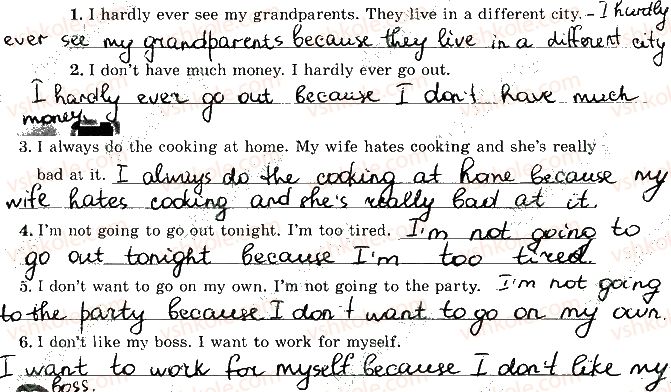 1. I hardly ever see my grandparents. They live in a different city. – I hardly
ever see my grandparents because they live in a different city
2. I don't have much money. I hardly ever go out.
I hardly ever go out because I don't have much
money.
3. I always do the cooking at home. My wife hates cooking and she's really
bad at it. I always do the cooking at home because my
wife hates cooking and she's really bad at it.
4. I'm not going to go out tonight. I'm too tired. I'm not going to
go out tonight because I'm too tired.
5. I don't want to go on my own. I'm not going to the party. I'm not going
to the party because I don't want to go on my own.
6. I don't like my boss. I want to work for myself.
I want to work for myself because I don't like my
boss.